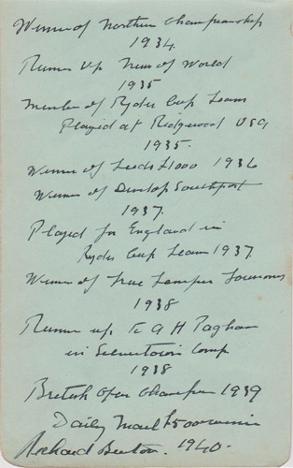 Winner of Northern Championship
1934
Runner Up News of World
1935
Member of Ryder Cup Team
Played at Ridgewood USA
1935.
Winner of Leeds £1000 1936
Winner of Dunlop Southport
1937.
Played for England in
Ryder Cup Team 1937
Winner of True Temper Tournms
1938
Runner up. To A H Padgham
in Silvertown Comp
1938
British Open Champion 1939
Daily Mail £500 winner
Richard Burton. 1940.